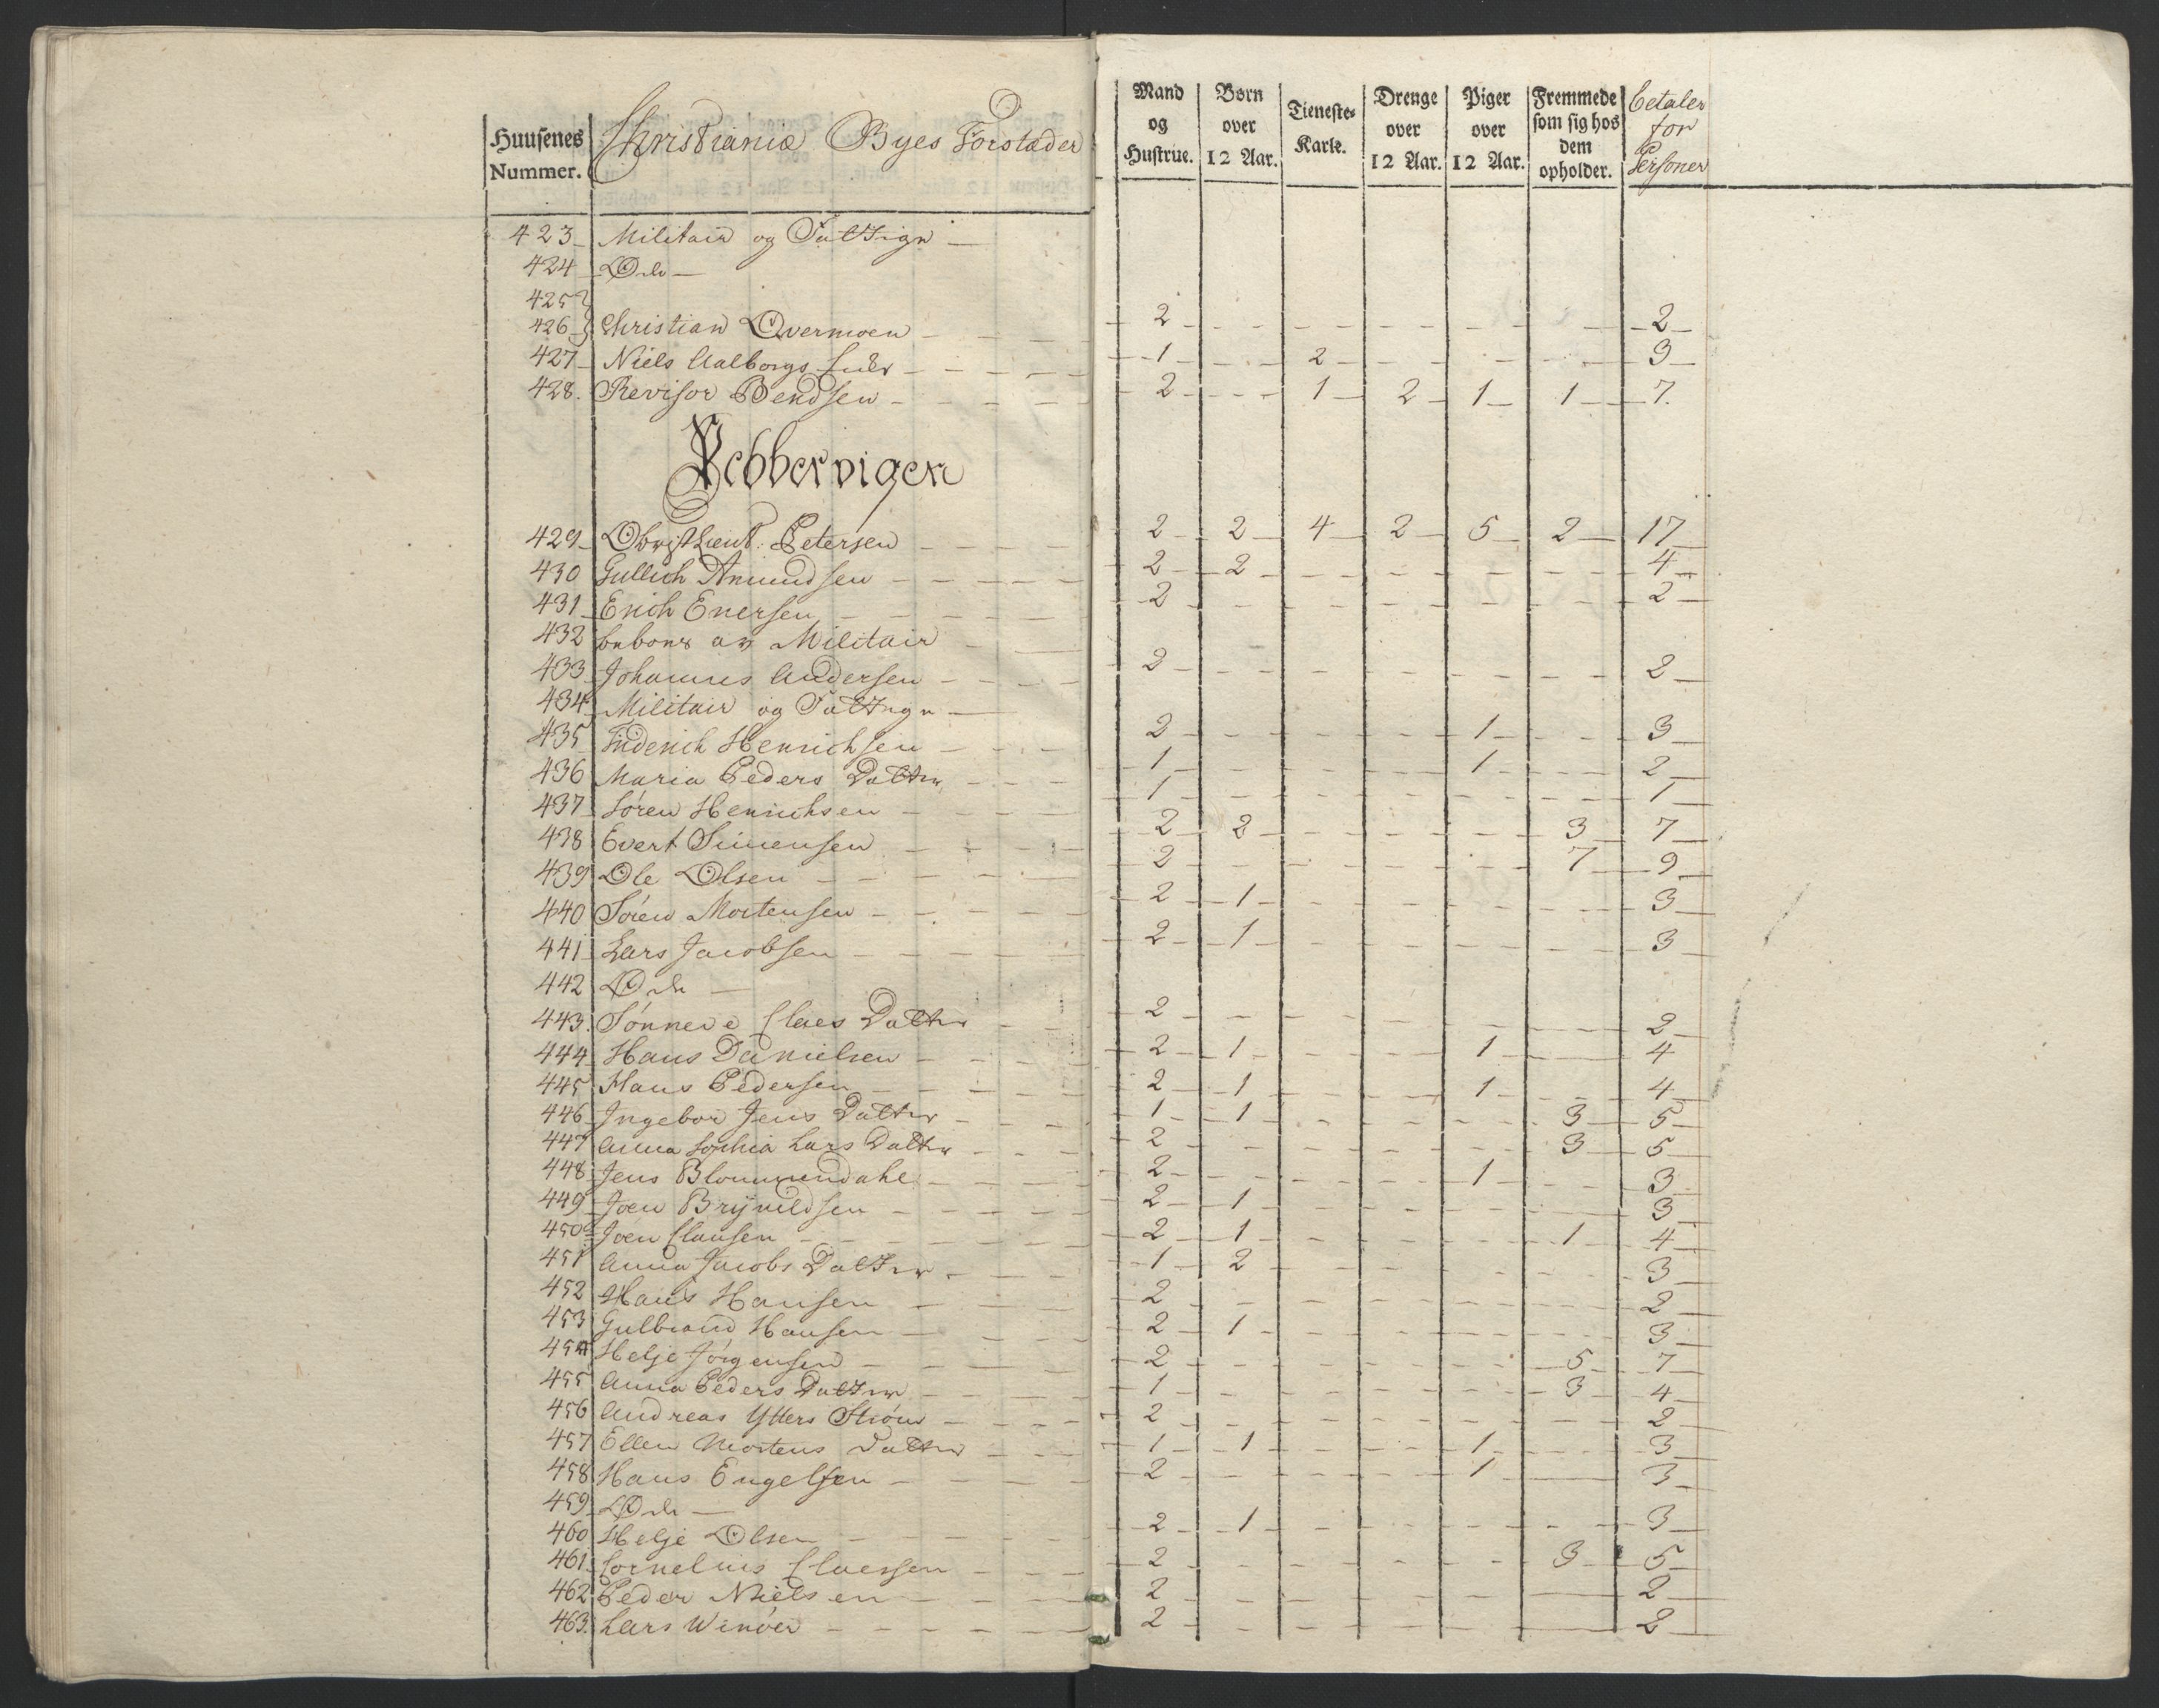 Huusenes Nummer. | Christiania Byes Forstæder | Mand og Hustrue. | Børn over 12 Aar. | Tieneste-Karle. | Drenge over 12 Aar. | Piger over 12 Aar. | Fremmede som sig hos dem opholder. | betaler for Personer
423 Militair og Fattige
424 Øde
425
426 Christian Overmoen 2 2
427 Niels Aalborgs 1 2 3
428. Revisor Bendsen 2 1 2 1 1 7.
Pebbervigen
429 Obristlieut: Petersen 2 2 4 2 5 2 17
430 Gullich Amundsen 2 2 4
431 Erich Enersen 2 2
432 beboes av Militair
433 Johannes Andersen 2 2
434 Militair og Fattige
435 Friderich Henrichsen 2 1 3
436 Maria Peders Datter 1 1 2
437 Søren Henrichsen 1 1
438 Evert Simensen 2 2 3 7
439 Ole Olsen 2 7 9
440 Søren Mortensen 2 1 3
441 Lars Jacobsen 2 1 3
442 Øde
443. Sønneve Claes Datter 2 2
444 Hans Danielsen 2 1 1 4
445 Hans Pedersen 2 1 1 4
446 Ingebor Jens Datter 1 1 3 5
447 Anna Sophia Lars Datter 2 3 5
448 Jens Blommendahl 2 1 3
449 Joen Brÿnildsen 2 1 3
450 Joen Clausen 2 1 1 4
451 Anna Jacobs Datter 1 2 3
452 Hans Hansen 2 2
453 Gulbrand Hansen 2 1 3
454 Helje Jørgensen 2 5 7
455 Anna Peders Datter 1 3 4
456 Andreas Ytters Strøm 2 2
457 Ellen Mortens Datter 1 1 1 3
458 Hans Engelsen 2 1 3
459 Øde
460 Helje Olsen 2 1 3
461 Cornelius Claessen 2 3 5
462 Peder Nielsen 2 2
463. Lars Winöer 2 2